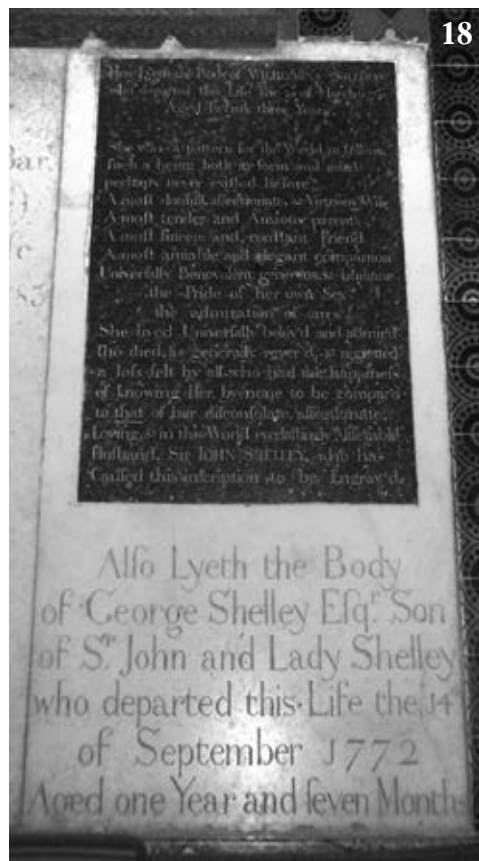 18
Here Lyeth the Body of
who departed this Life the of March
Aged twenty three Years
She was a pattern for the World to follow
Such a being both in form and mind
perhaps never existed before
A most dutiful, affectionate, & Virtuous Wife
A most tender and Anxious parent
A most sincere and constant Friend
A most amiable and elegant companion
Universally Benevolent, generous, & humane
the Pride of her own Sex
the admiration of ours
She lived Universally belov'd and admir'd
She died, as generally rever'd, & regretted
a loss felt by all who had the happiness
of knowing Her, by none to be compar'd
to that of her disconsolate, affectionate,
Loving, & in this World everlastingly Miserable
Husband, Sir JOHN SHELLEY, who has
Caused this inscription to be Engrav'd
Alſo Lyeth the Body
of George Shelley Eſqr. Son
of Sr. John and Lady Shelley
who departed this Life the 14th
of September 1772
Aged one Year and ſeven Months